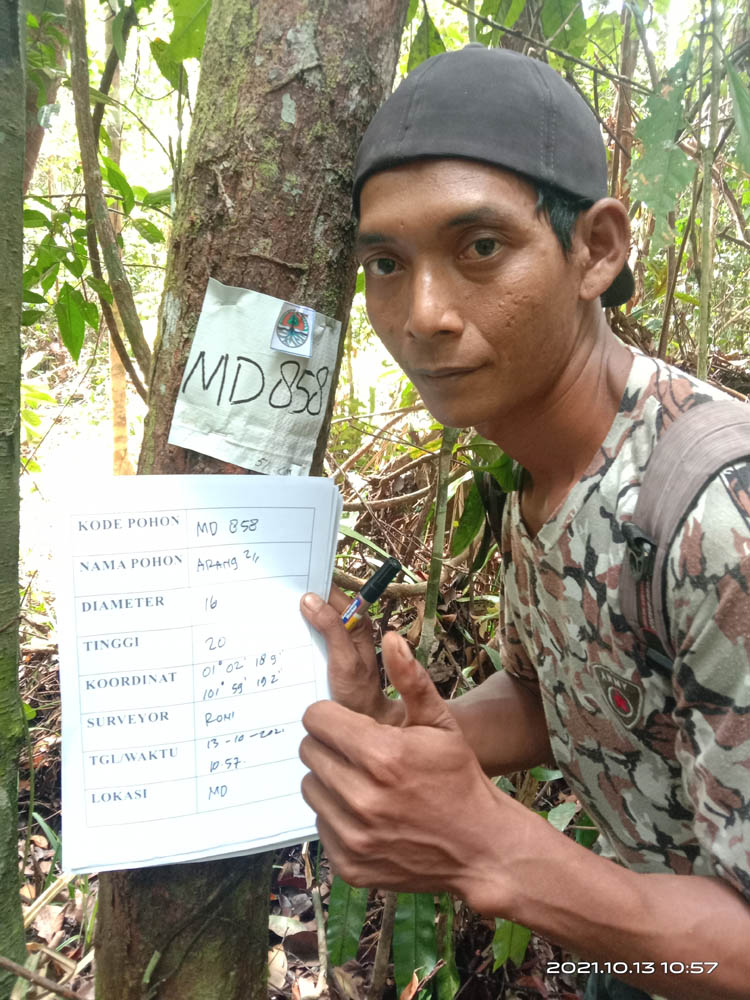 MD 858
KODE POHON MD 858
NAMA POHON ARANG 2"
DIAMETER 16
TINGGI 20
KOORDINAT 01° 02' 18 9"
101° 59' 19 2"
SURVEYOR RONI
TGL/WAKTU 13-10-2021
10:57.
LOKASI MD
2021.10.13 10:57